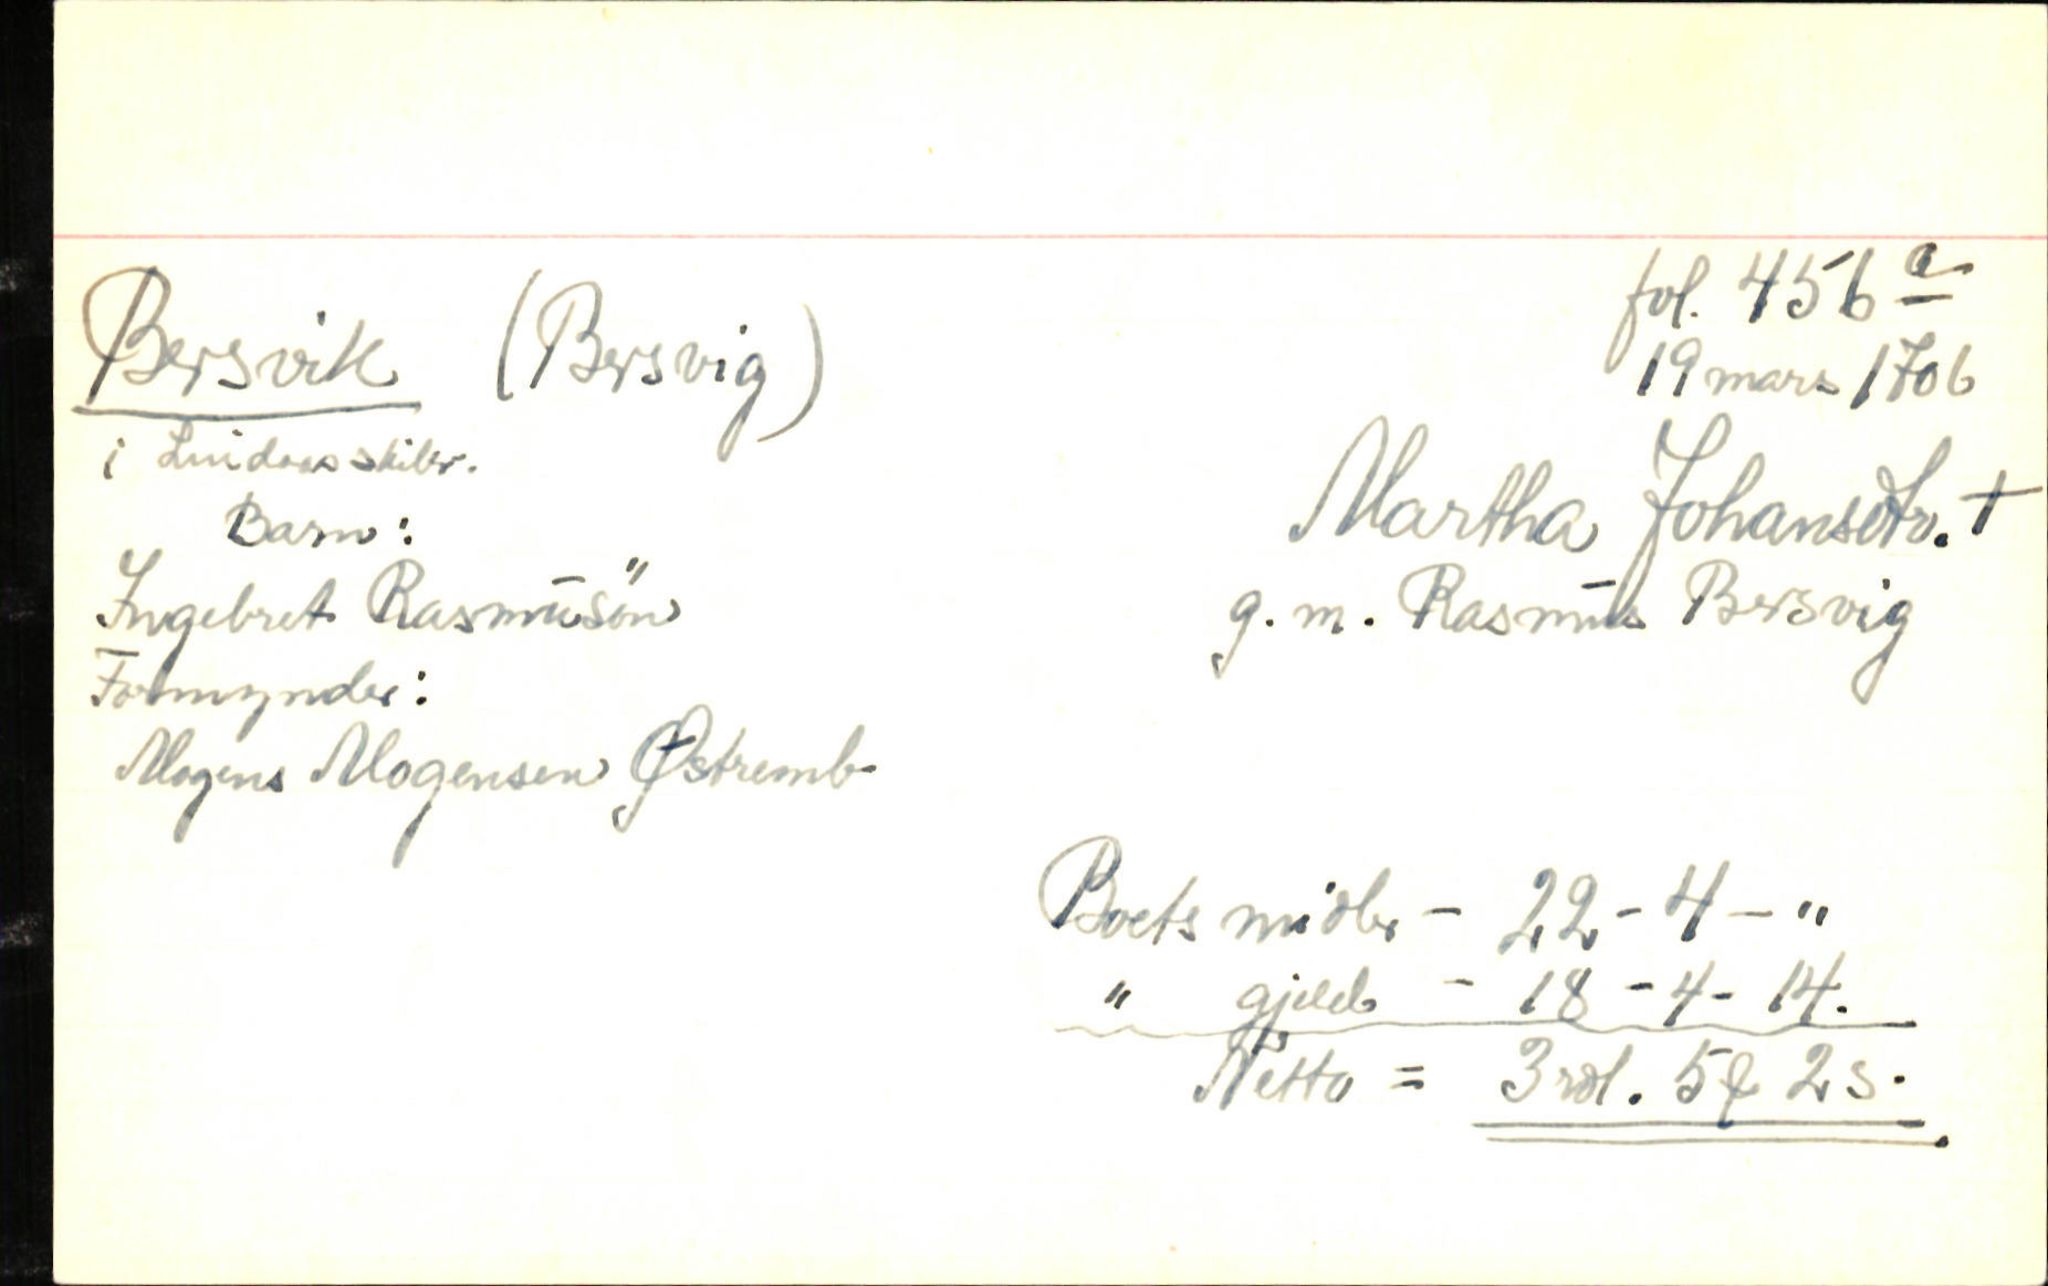 fol. 456 a
19 mars 1706
Bersvik (Bersvig)
i Lindaas skibr.
Martha Johansdtr. †
g. m. Rasmus Bersvig
Barn:
Ingebret Rasmusön
Formynder:
Mogens Mogensen Østremb
Boets midler - 22 - 4 - "
" gjeld - 18 - 4 - 14.
Netto = 3 rdl. 5 2 s.